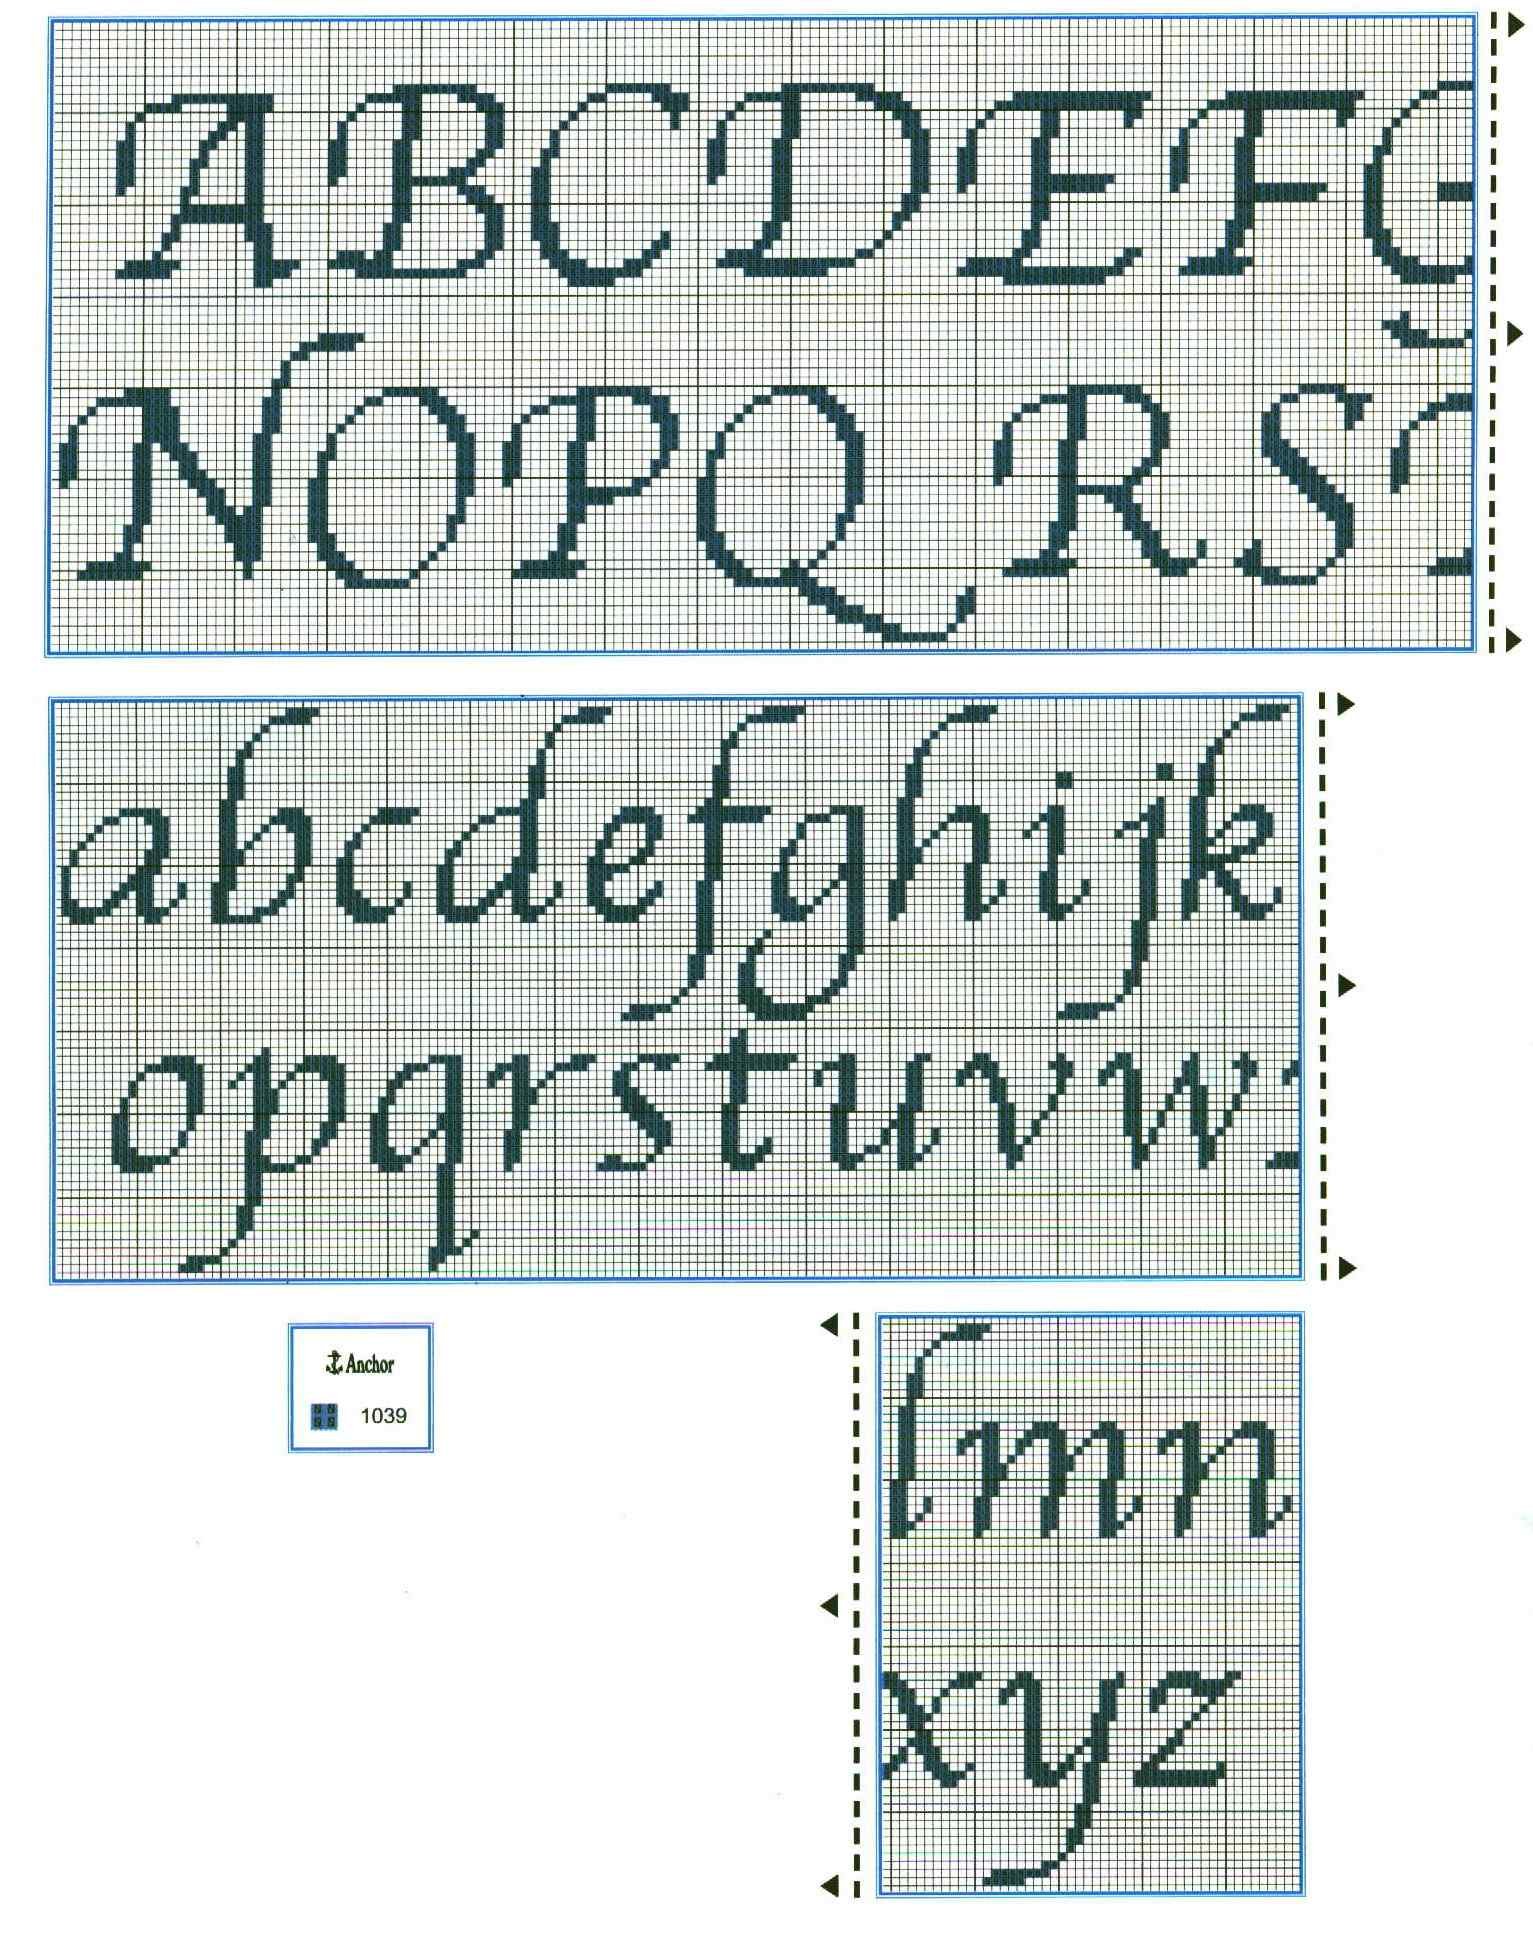 A B C D E F G
N O P Q R S
a b c d e f g h i j k
o p q r s t u v w
Anchor
1039
l m n
x y z